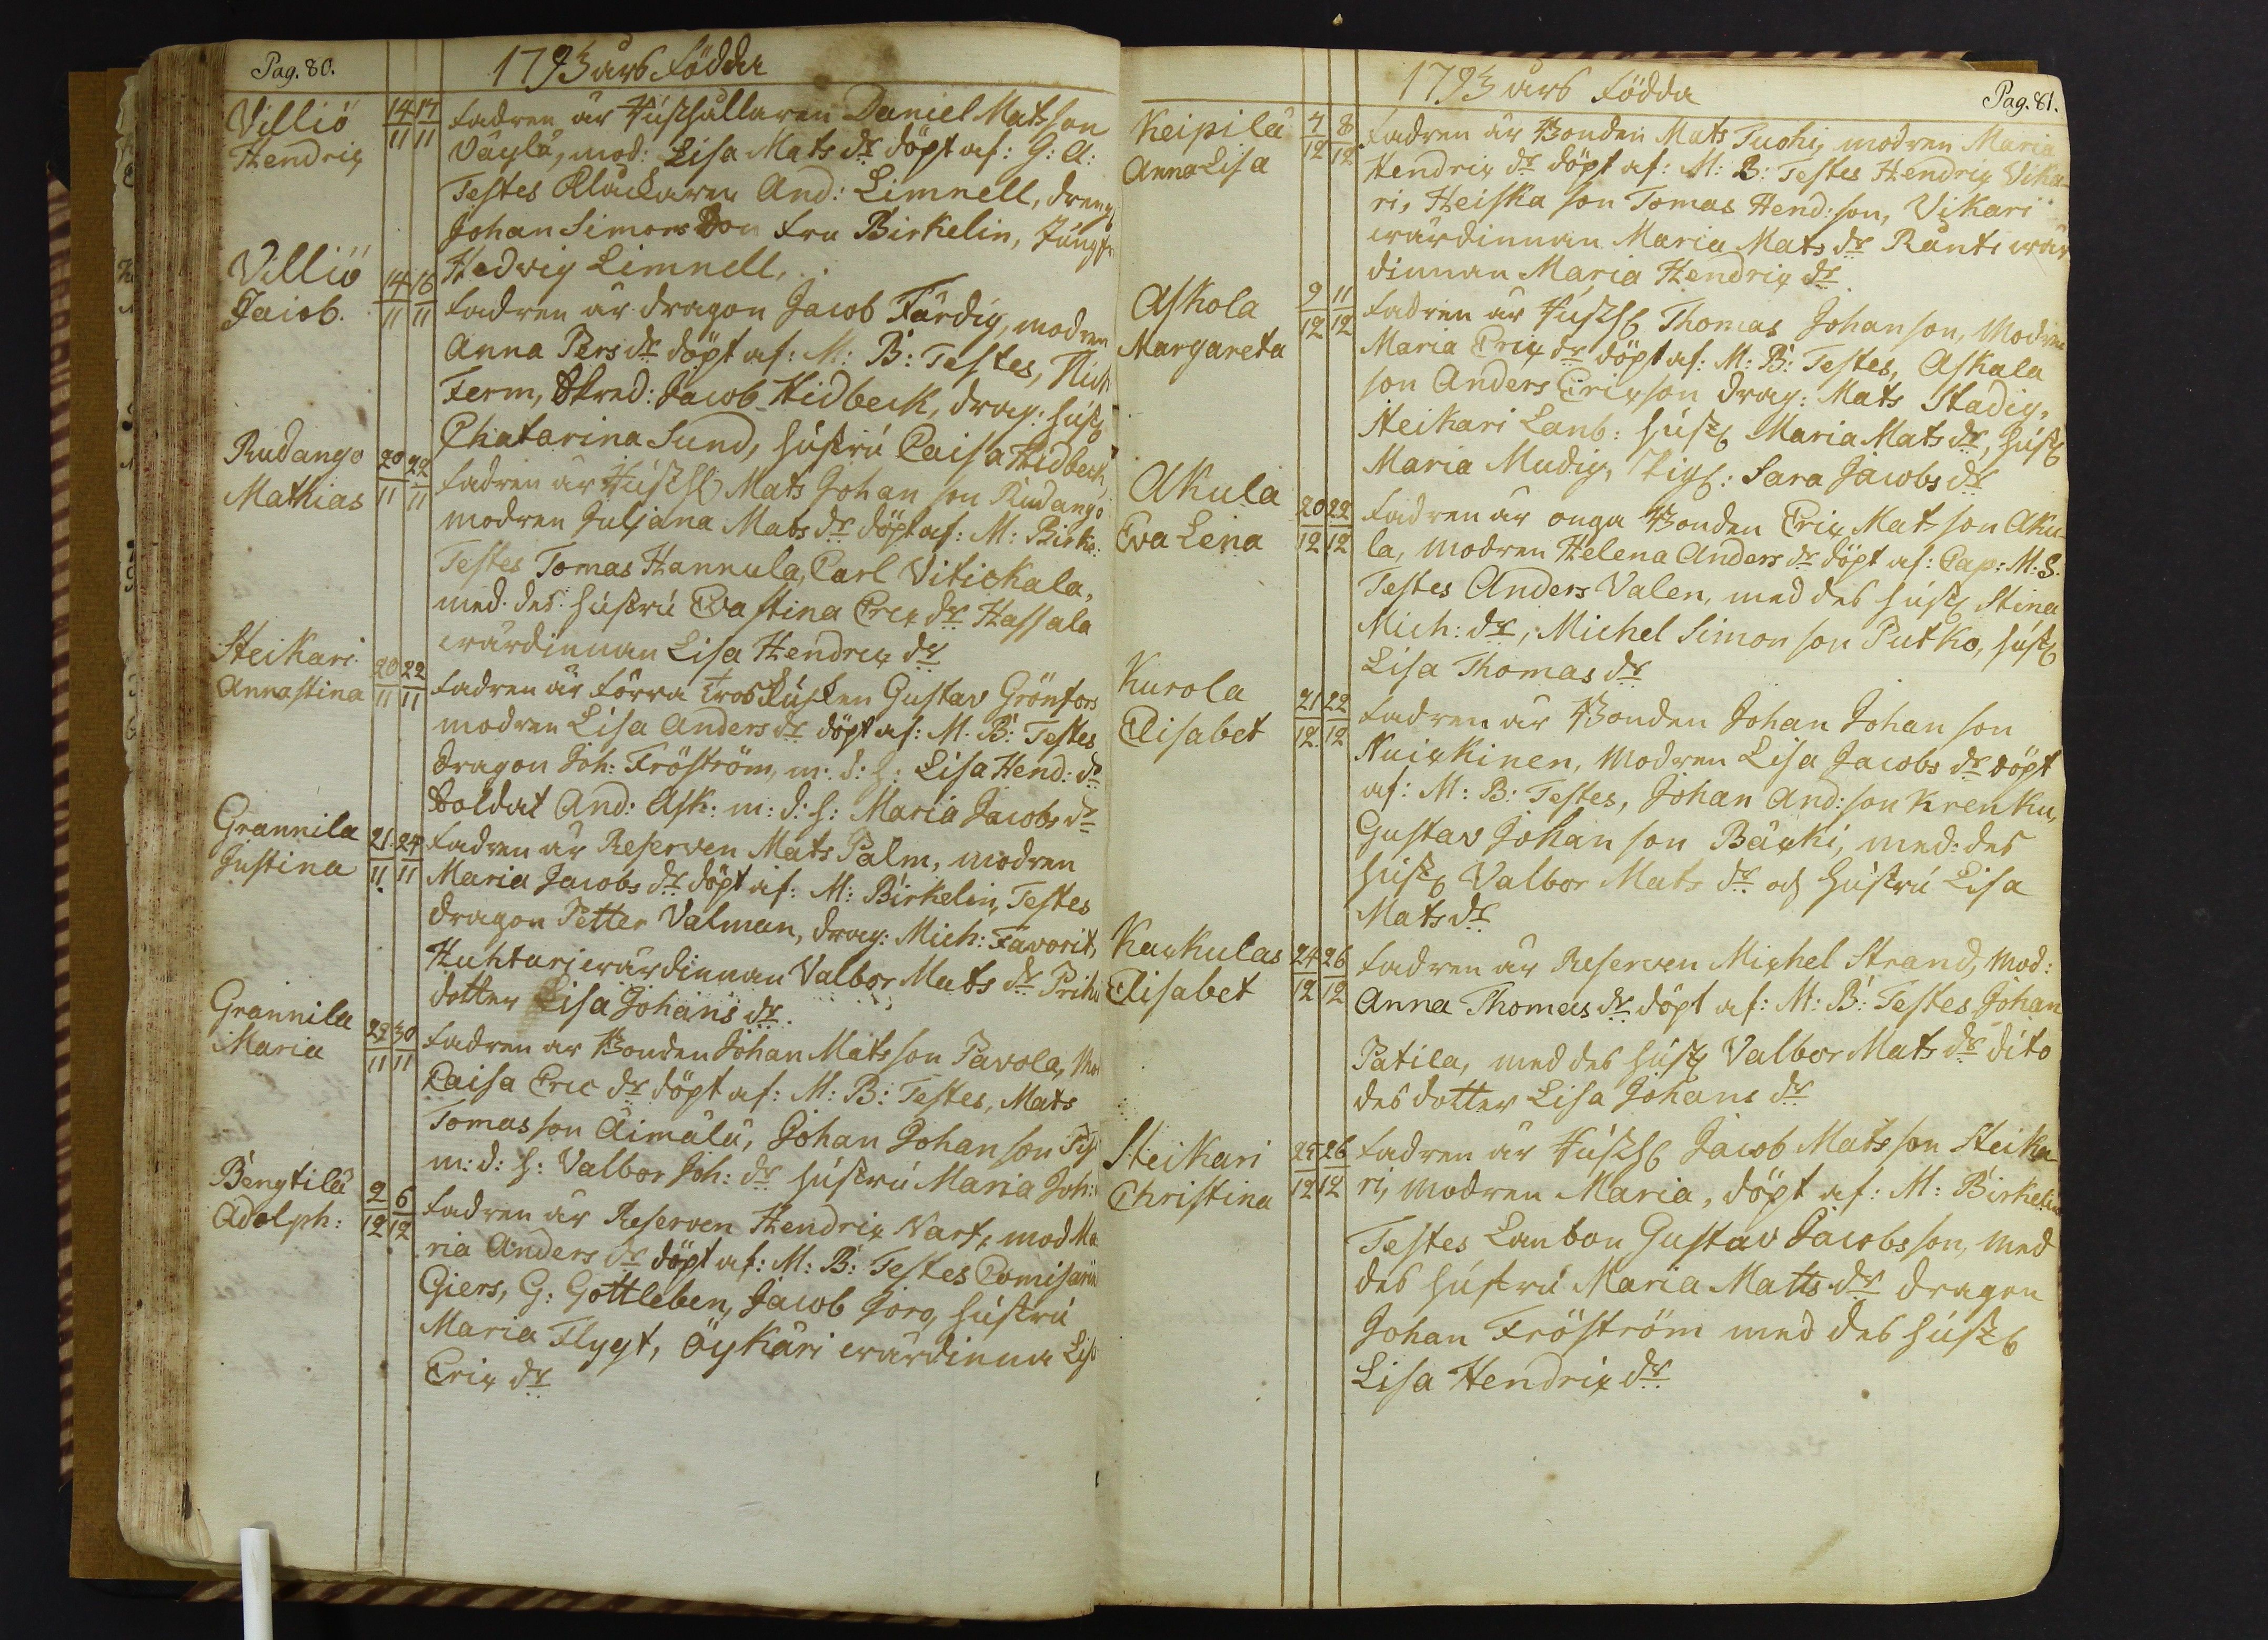 Pag. 80.
1793 års födda
Villiö
Hendrix
14/11 17/11
fadren är Hushållaren Daniel Matsson
Väylä, mod: Lisa Mats dr döpt af: G: A:
Testes Klåckaren And: Limnell, dreng
Johan Simonsson fru Birkelin, Jungfr
Hedvig Limnell,
Villiö
Jacob.
14/11 16/11
fadren är dragon Jacob Färdig, modren
Anna Pers dr döpt af: M: B: Testes,
Ferm, Skred: Jacob Hidbeck, drag: hust
Chatarina Sund, hustru Caisa Hidbeck,
Rudango
Mathias
20/11 22/11
fadren är Hush Mats Johan son Rudango
modren Juljana Mats dr döpt af: M: Birke:
Testes Tomas Hannula, Carl Vitickala,
med. des hustru Eva Stina Erix dr Hassala
wärdinnan Lisa Hendrix dr
Steikari
Anna Stina
20/11 22/11
fadren är förra Trosskusken Gustav Grönfors
modren Lisa Anders dr döpt af: M. B: Testes
dragon Joh: Fröström, m: d: h: Lisa Hend: dr
Soldat And: Ask: m: d: h: Maria Jacobs dr
Grannila
Justina
21/11 24/11
fadren är Reserven Mats Palm, modren
Maria Jacobs dr döpt af: M: Birkelin, Testes
dragon Petter Valman, drag: Mich: Favorit,
Huhtari wärdinnan Valbor Mats dr
dotter Lisa Johans dr.
Grannila
Maria
29/11 30/11
fadren är Bonden Johan Mats son Pavola, Mo
Caisa Eric dr döpt af: M: B: Testes, Mats
Tomas son Äimälä, Johan Johan son
m: d: h: Valbor Joh: dr hustru Maria Joh:
Bengtilä
Adolph:
2/12 6/12
fadren är Reserven Hendrix Narf, mod Ma
ria Anders dr döpt af: M: B: Testes Comisarie
Giers, G: Gottleben, Jacob Jorg, hustru
Maria Flygt, Öykäri wärdinna Lis
Erix dr
1793 års födda
Pag. 81.
Keipilä
Anna Lisa
4/12 8/12
fadren är Bonden Mats Tuohi, modren Maria
Hendrix dr döpt af: M: B: Testes Hendrix Vika-
ri, Heiska son Tomas Hend: son, Vikari
wärdinnan Maria Mats dr Ranti wär
dinnan Maria Hendrix dr
Askola
Margareta
9/12 11/12
fadren är Hush Thomas Johan son, Modren
Maria Erix dr döpt af: M: B: Testes, Askala
son Anders Erixson drag: Mats Stadig,
Steikari Lanb: hust Maria Mats dr, hust
Maria Mudig, Pig: Sara Jacobs dr
Akula
Eva Lena
20/12 22/12
fadren är onga Bonden Erix Mats son Aku-
la, Modren Helena Anders dr döpt af: Cap: M: S.
Testes Anders Valen, med des hust Stina
Mich: dr, Michel Simon son Putko, hust
Lisa Thomas dr
Kurola
Elisabet
21/12 22/12
fadren är Bonden Johan Johan son
Nuickinen, Modren Lisa Jacobs dr döpt
af: M: B: Testes, Johan And: son Krenku,
Gustav Johan son Bäcki, med: des
hust Valbor Mats dr och hustru Lisa
Mats dr
Kackulas
Elisabet
24/12 26/12
fadren är Reserven Michel Strand, Mod:
Anna Thomas dr döpt af: M: B: Testes Johan
Patila, med des hust Valbor Mats dr dito
des dotter Lisa Johans dr
Steikari
Christina
25/12 26/12
fadren är Hush Jacob Mats son Steika
ri, Modren Maria, döpt af: M: Birkelin
Testes Lanbon Gustav Jacobs son, med
des hustru Maria Matts dr dragon
Johan Fröström med des hust
Lisa Hendrix dr